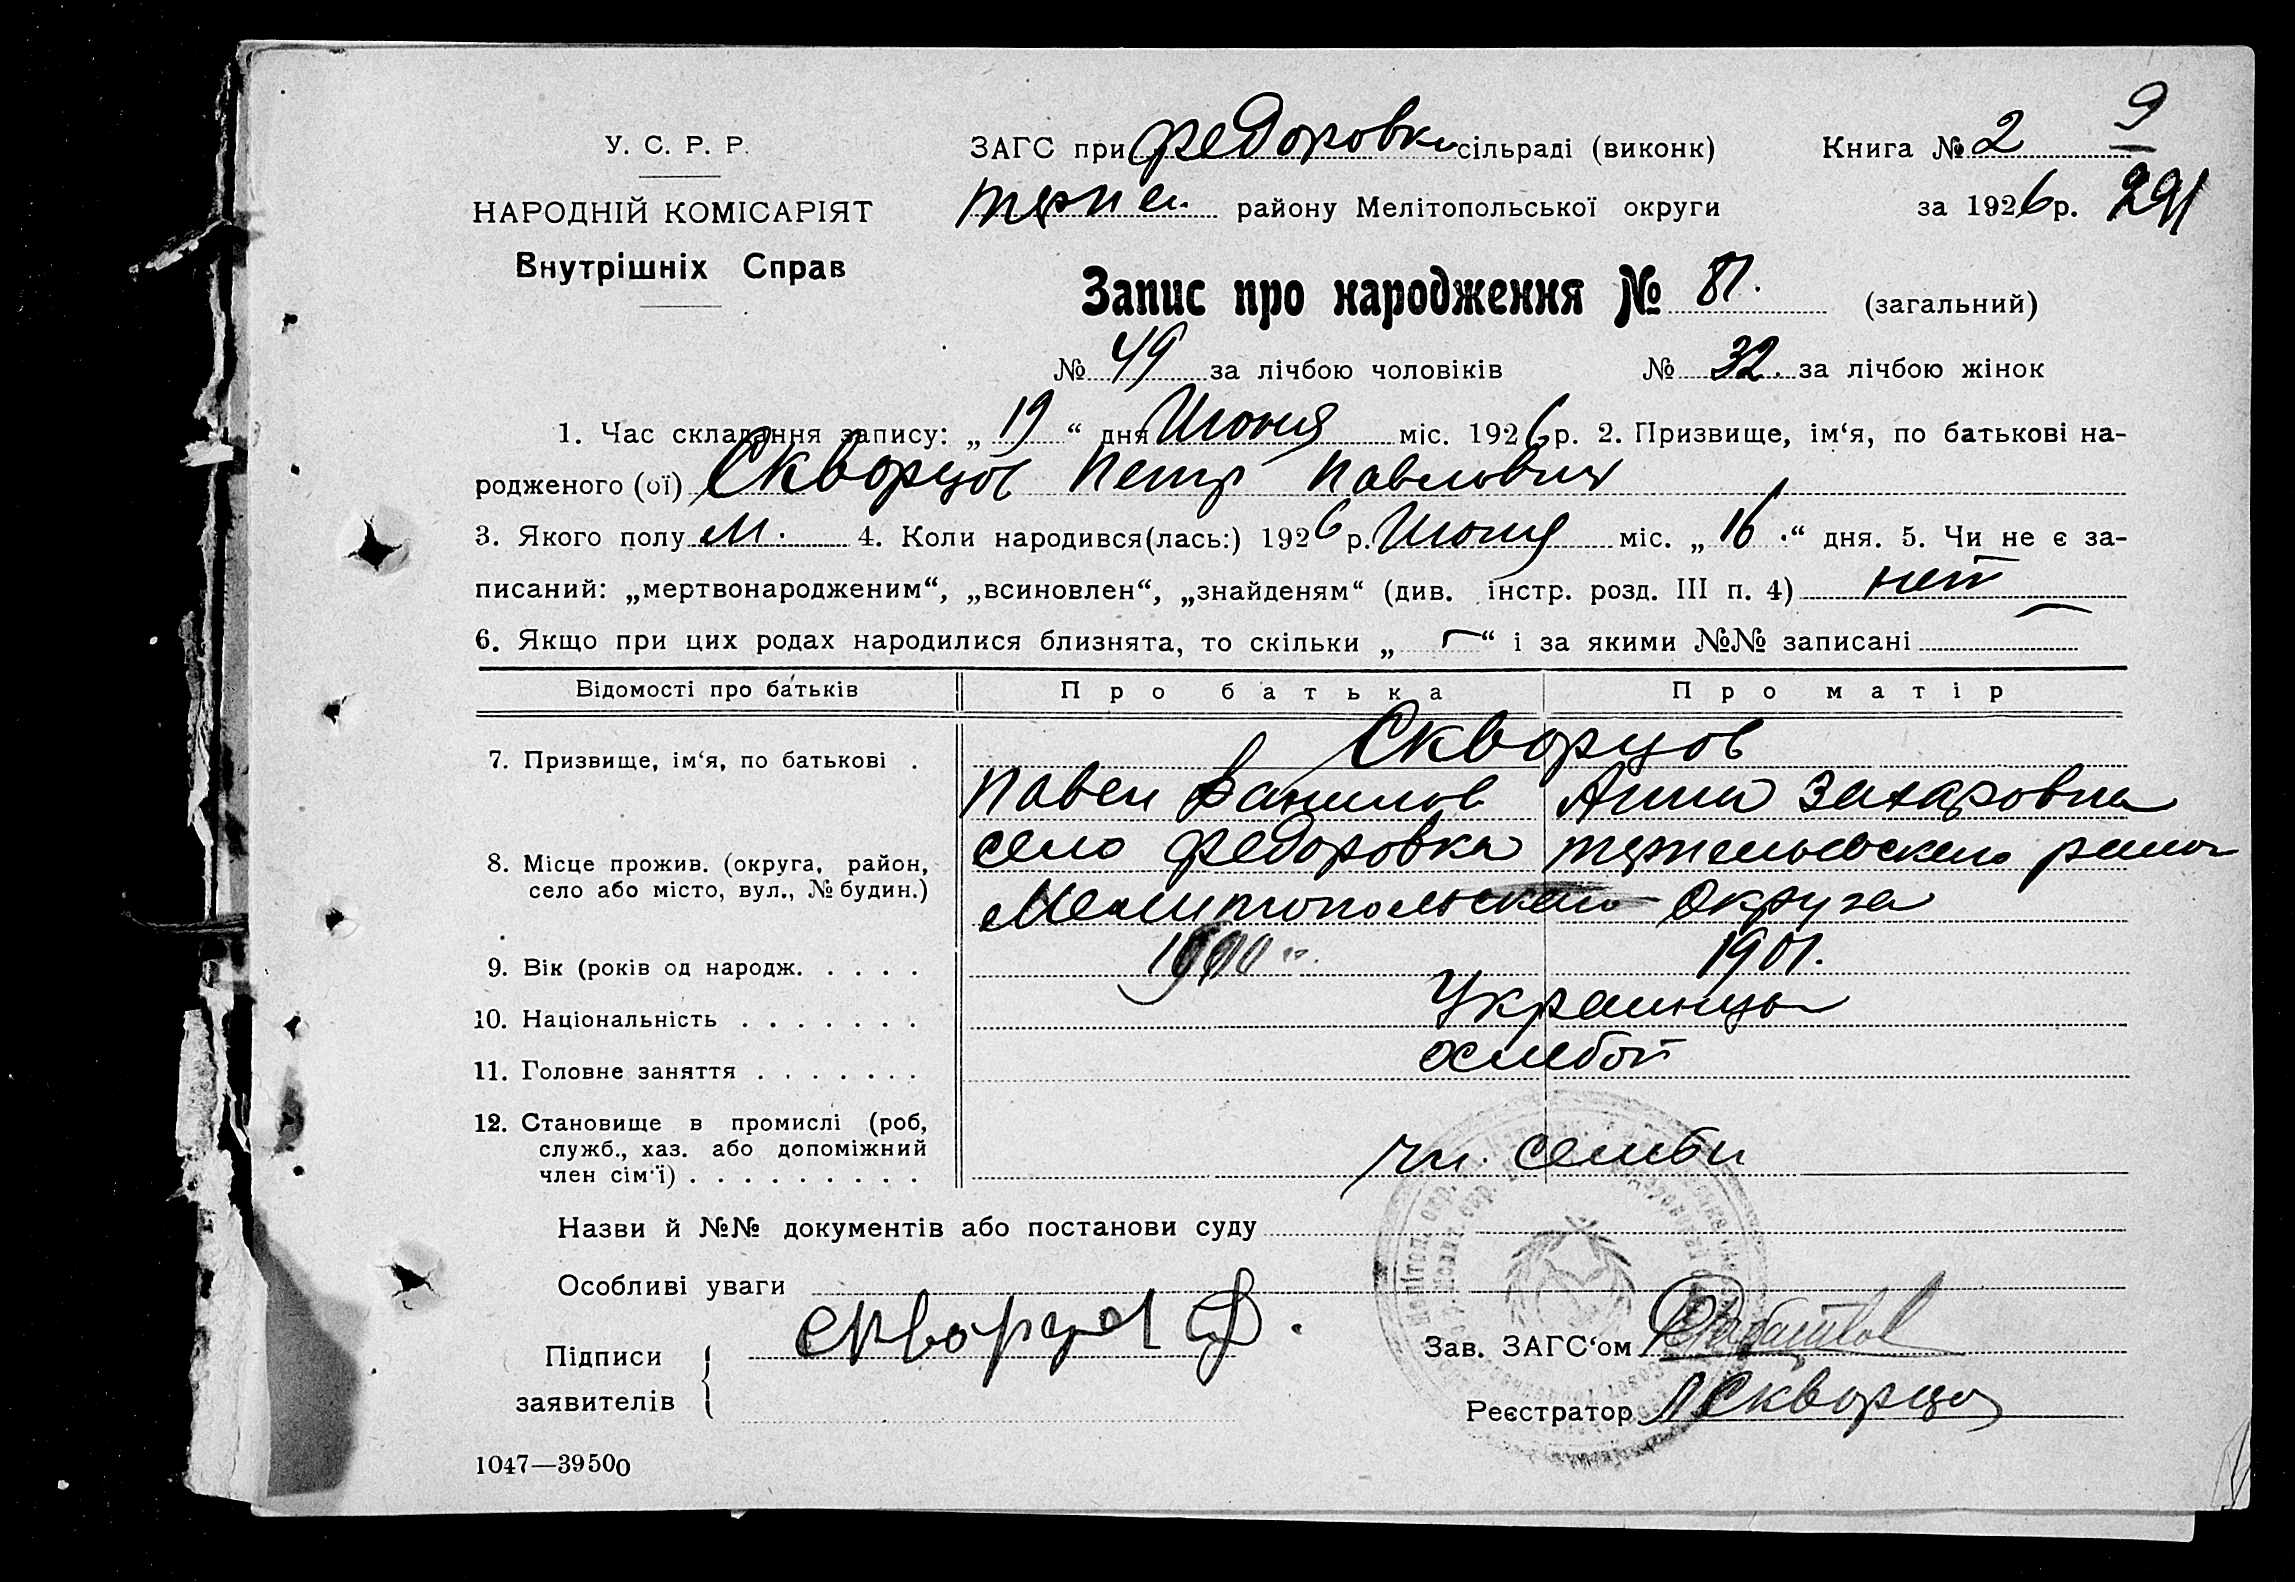 9
У. С. Р. Р. ЗАГС при Федоровки сільраді (виконк) Книга № 2
НАРОДНІЙ КОМІСАРІЯТ району Мелітопольської округи за 1926 р. 291
Внутрішніх Справ
Запис про народження № 81. (загальний)
№ 49 за лічбою чоловіків № 32. за лічбою жінок
1. Час складання запису: „ 19 “ дня Июня міс. 1926 р. 2. Призвище, ім‘я, по батькові на-
родженого (ої) Скворцов Петр Павлович
3. Якого полу М. 4. Коли народився(лась:) 1926 р. Июня міс. „ 16 “ дня. 5. Чи не є за-
писаний: „мертвонародженим“, „всиновлен“, „знайденям“ (див. інстр. розд. III п. 4) нет
6. Якщо при цих родах народилися близнята, то скільки „ — “ і за якими №№ записані —
Відомості про батьків Про батька Про матір
7. Призвище, ім‘я, по батькові . Скворцов
Павел Данилов Анна Захаровна
8. Місце прожив. (округа, район, село Федоровка
село або місто, вул., № будин.) Мелитопольского Округа
9. Вік (років од народж. . . . . 1901.
10. Національність . . . . . . . Украинцы
11. Головне заняття . . . . . . .
12. Становище в промислі (роб,
служб., хаз. або допоміжний чл. семьи
член сім‘ї) . . . . . . . . .
Назви й №№ документів або постанови суду
Особливі уваги
Підписи Скворцов Зав. ЗАГС‘ом
заявителів Реєстратор Скворцов
1047—39500